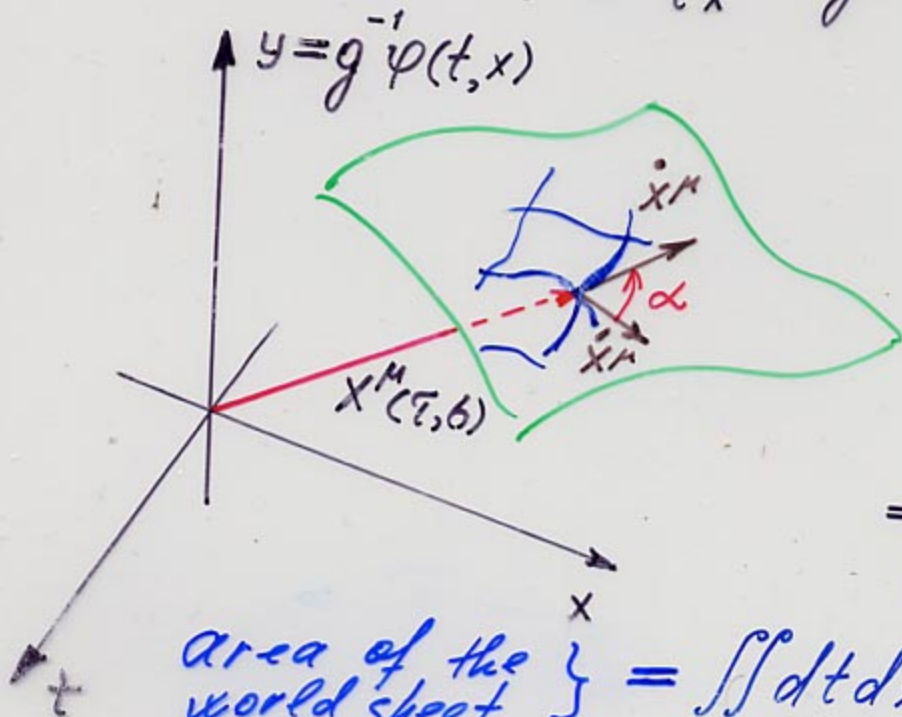 y=g⁻¹φ(t,x)
ẋ^μ
α
ẋ^μ
X^μ(τ,σ)
=
x
t
area of the
world sheet } = ∬dtd